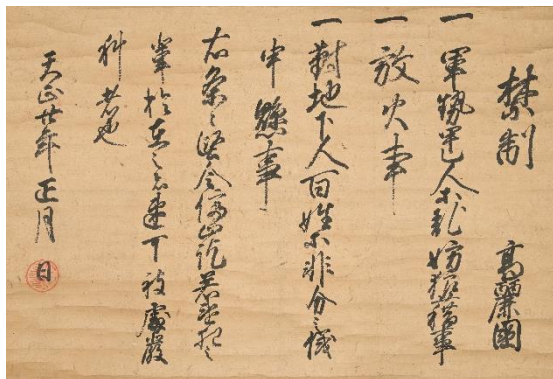 禁制 高麗國
一 軍勢甲乙人等乱妨狼藉事
一 放火事
一 對地下人百姓等非分之儀
申懸事
右条々堅令停止訖若違犯之
輩於在之者速可被處嚴
科者也
天正廿年正月 日